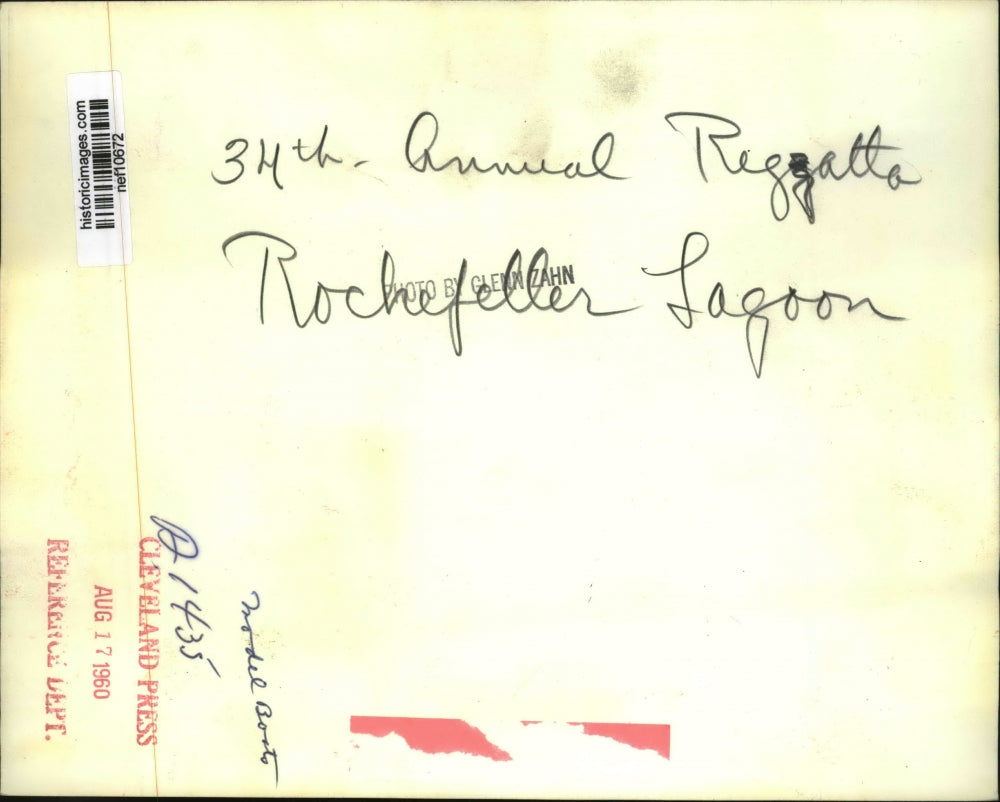 34th - Annual Reggatta
Rockefeller Lagoon
PHOTO BY GLENN ZAHN
historicimages.com
nef10672
A1435
CLEVELAND PRESS
AUG 17 1960
REFERENCE DEPT.
Model Boats